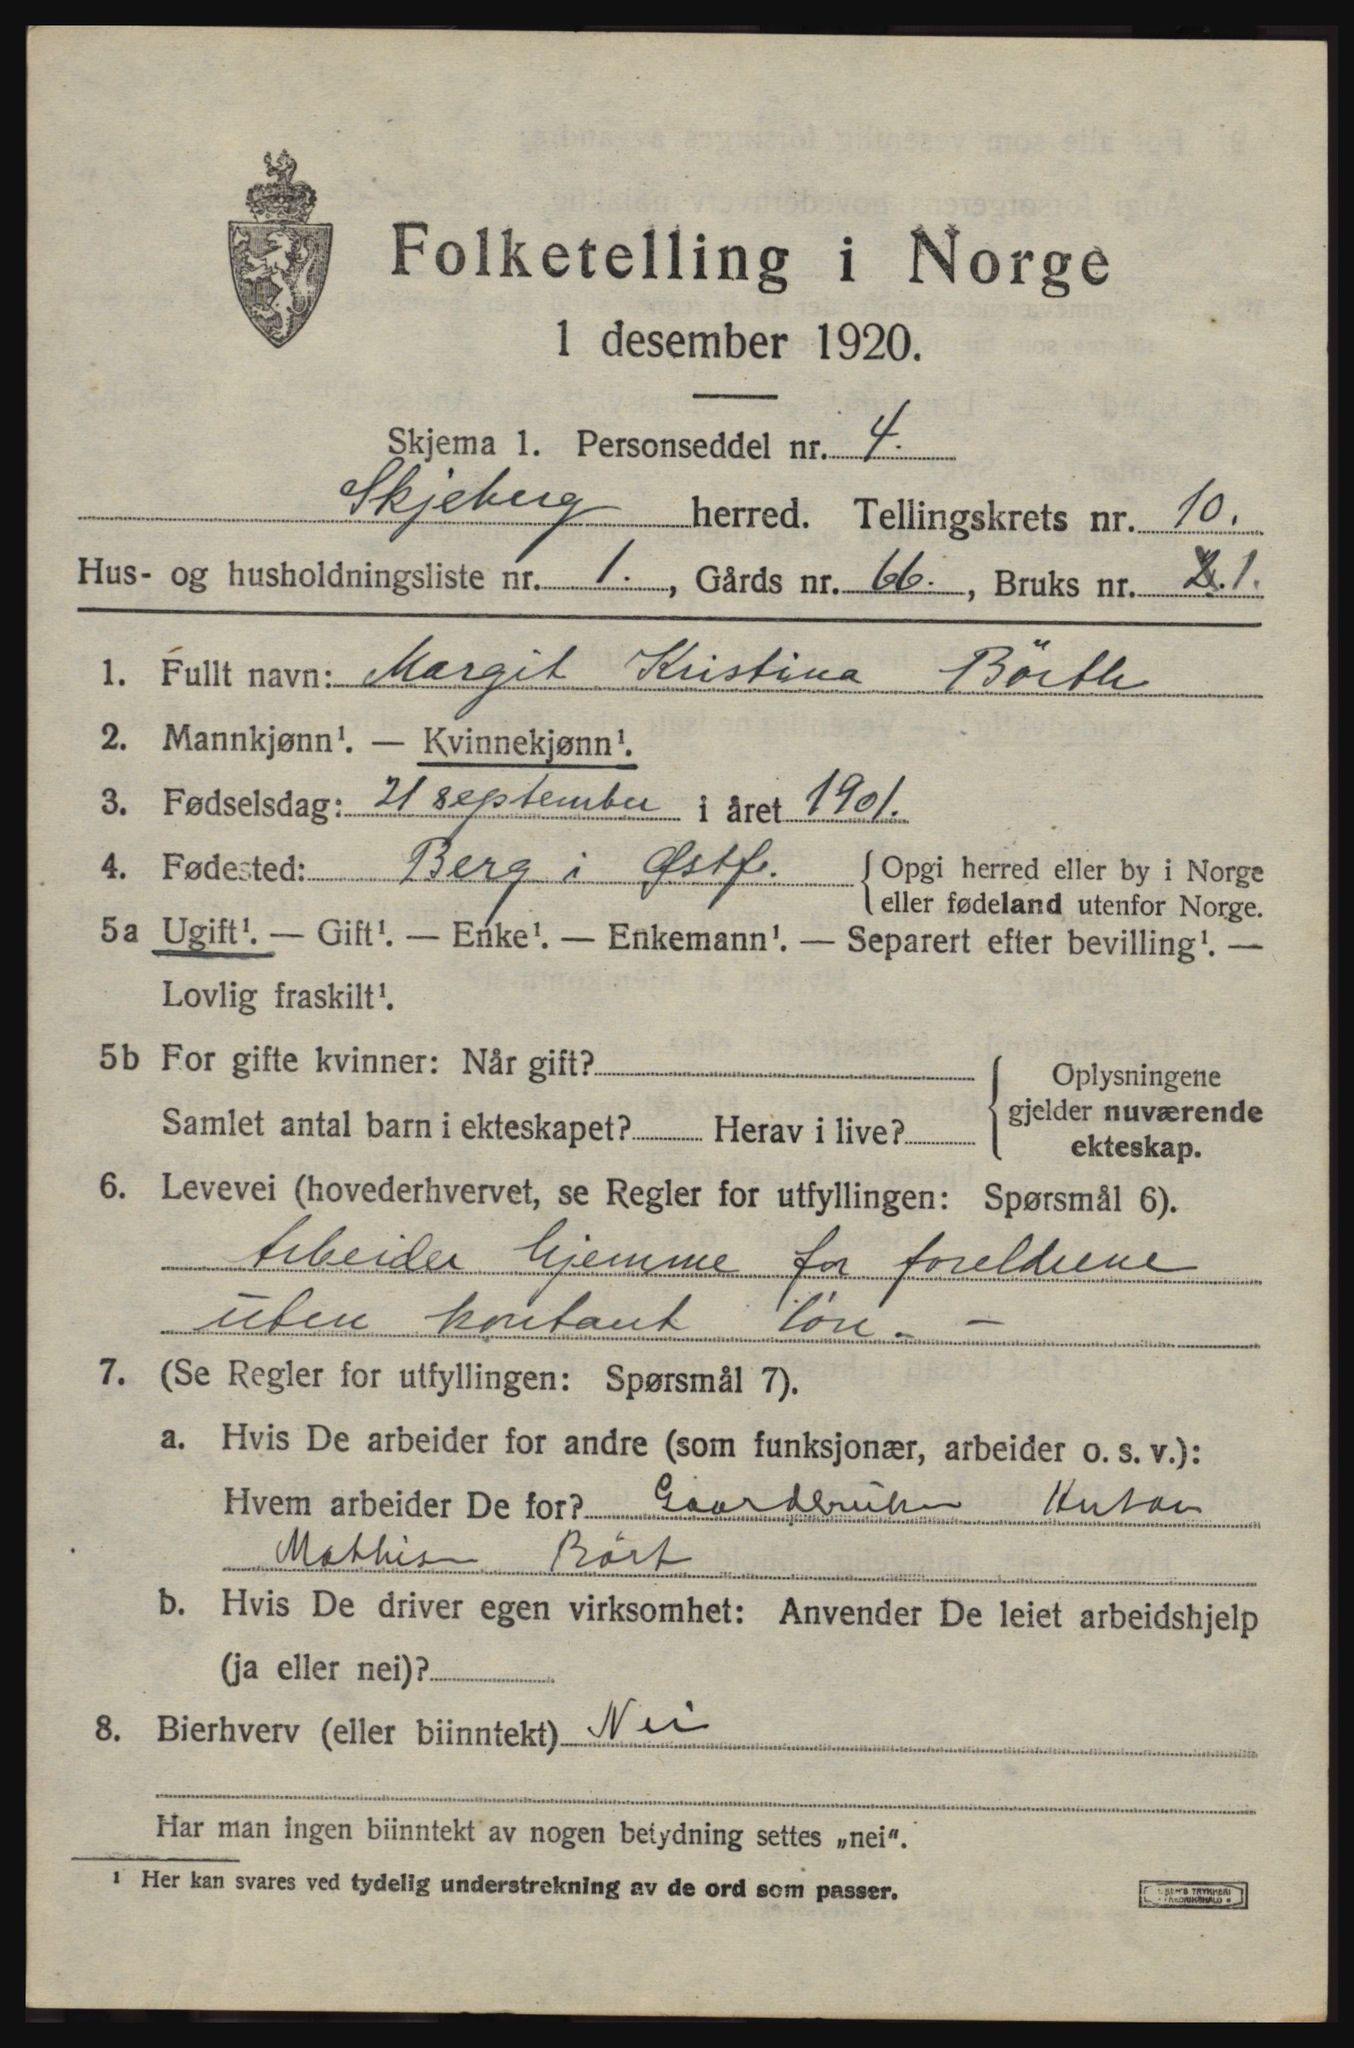 Folketelling i Norge
1 desember 1920.
Skjema 1. Personseddel nr. 4.
Skjeberg herred. Tellingskrets nr. 10.
Hus- og husholdningsliste nr. 1., Gårds nr. 66., Bruks nr. 2.1.
1. Fullt navn: Margit Kristina Börth
2. Mannkjønn¹. — Kvinnekjønn¹.
3. Fødselsdag: 21 september i året 1901.
4. Fødested: Berg i Østf. Opgi herred eller by i Norge
eller fødeland utenfor Norge.
5a Ugift¹. — Gift¹. — Enke¹. — Enkemann¹. — Separert efter bevilling¹. —
Lovlig fraskilt¹.
5b For gifte kvinner: Når gift?
Samlet antal barn i ekteskapet? Herav i live?
Oplysningene
gjelder nuværende
ekteskap.
6. Levevei (hovederhvervet, se Regler for utfyllingen: Spørsmål 6).
Arbeider hjemme for foreldrene
uten kontant lön. -
7. (Se Regler for utfyllingen: Spørsmål 7).
a. Hvis De arbeider for andre (som funksjonær, arbeider o. s. v.):
Hvem arbeider De for? Gaardbruker
Mathis Bört
b. Hvis De driver egen virksomhet: Anvender De leiet arbeidshjelp
(ja eller nei)?
8. Bierhverv (eller biinntekt) Nei
Har man ingen biinntekt av nogen betydning settes „nei".
¹ Her kan svares ved tydelig understrekning av de ord som passer.
TRYKKERI